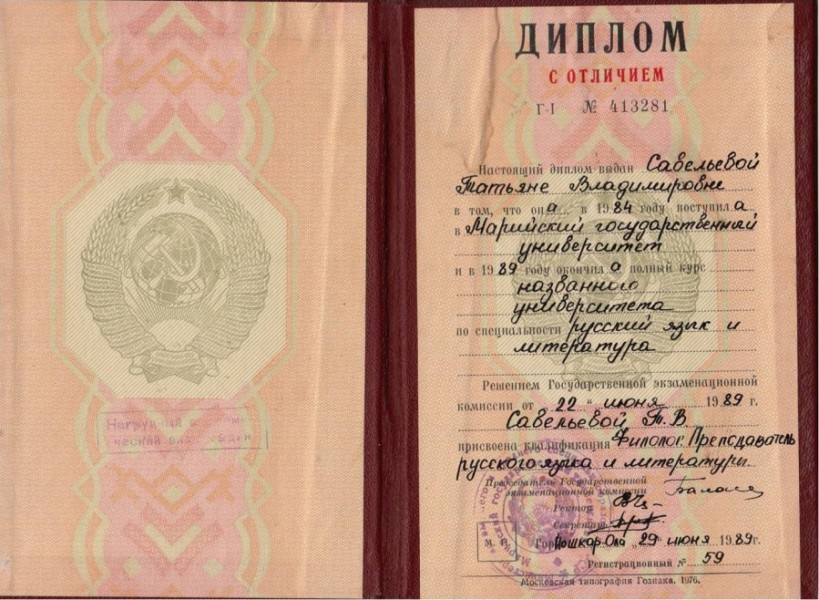 Нагрудный
ческий
ДИПЛОМ
С ОТЛИЧИЕМ
Г-I № 413281
Настоящий диплом выдан Савельевой
Татьяне Владимировне
в том, что она в 1984 году поступила
в Марийский государственный
университет
и в 1989 году окончила полный курс
названного
университета
по специальности русский язык и
литература
Решением Государственной экзаменационной
комиссии от „22" июня 1989 г.
Савельевой Т. В
присвоена квалификация Филолог. Преподаватель
русского языка и литературы.
Председатель Государственной
экзаменационной комиссии
Ректор
Секретарь
М. П. Город Йошкар-Ола „29" июня 1989 г.
Регистрационный № 59
Московская типография Гознака. 1976.